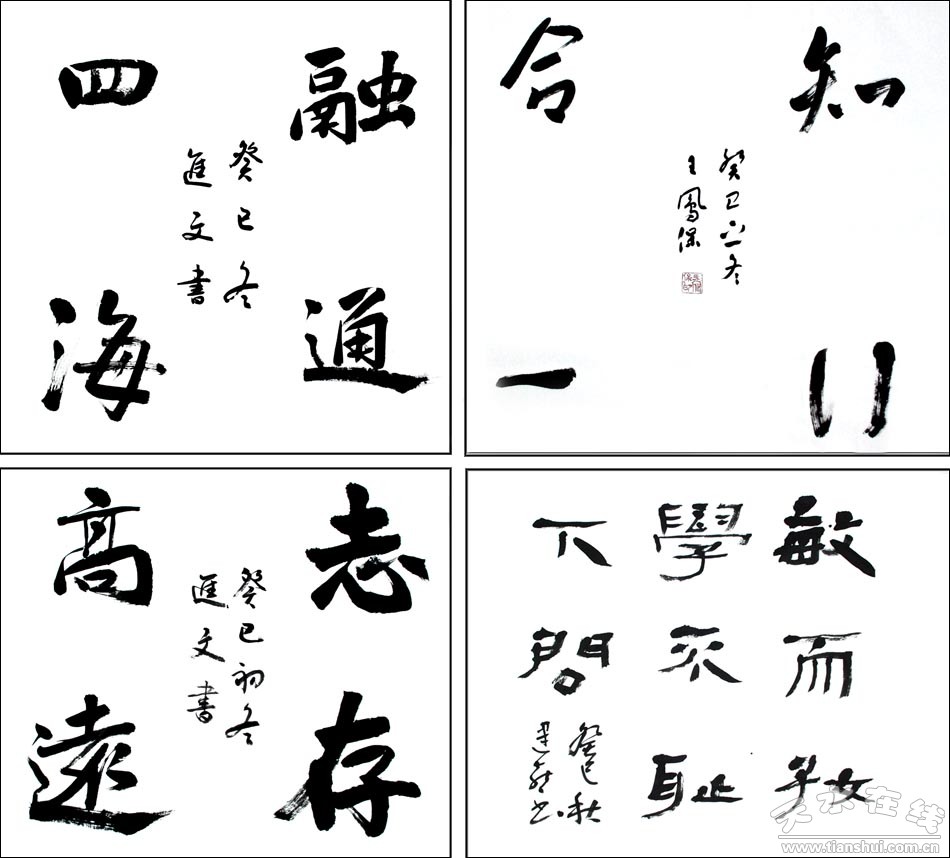 融通
四海
癸巳冬
進文書
知行
合一
癸巳冬
王鳳保
志存
高遠
癸巳初冬
進文書
敏而好
學不耻
下問
癸巳秋
天水在线
www.tianshui.com.cn